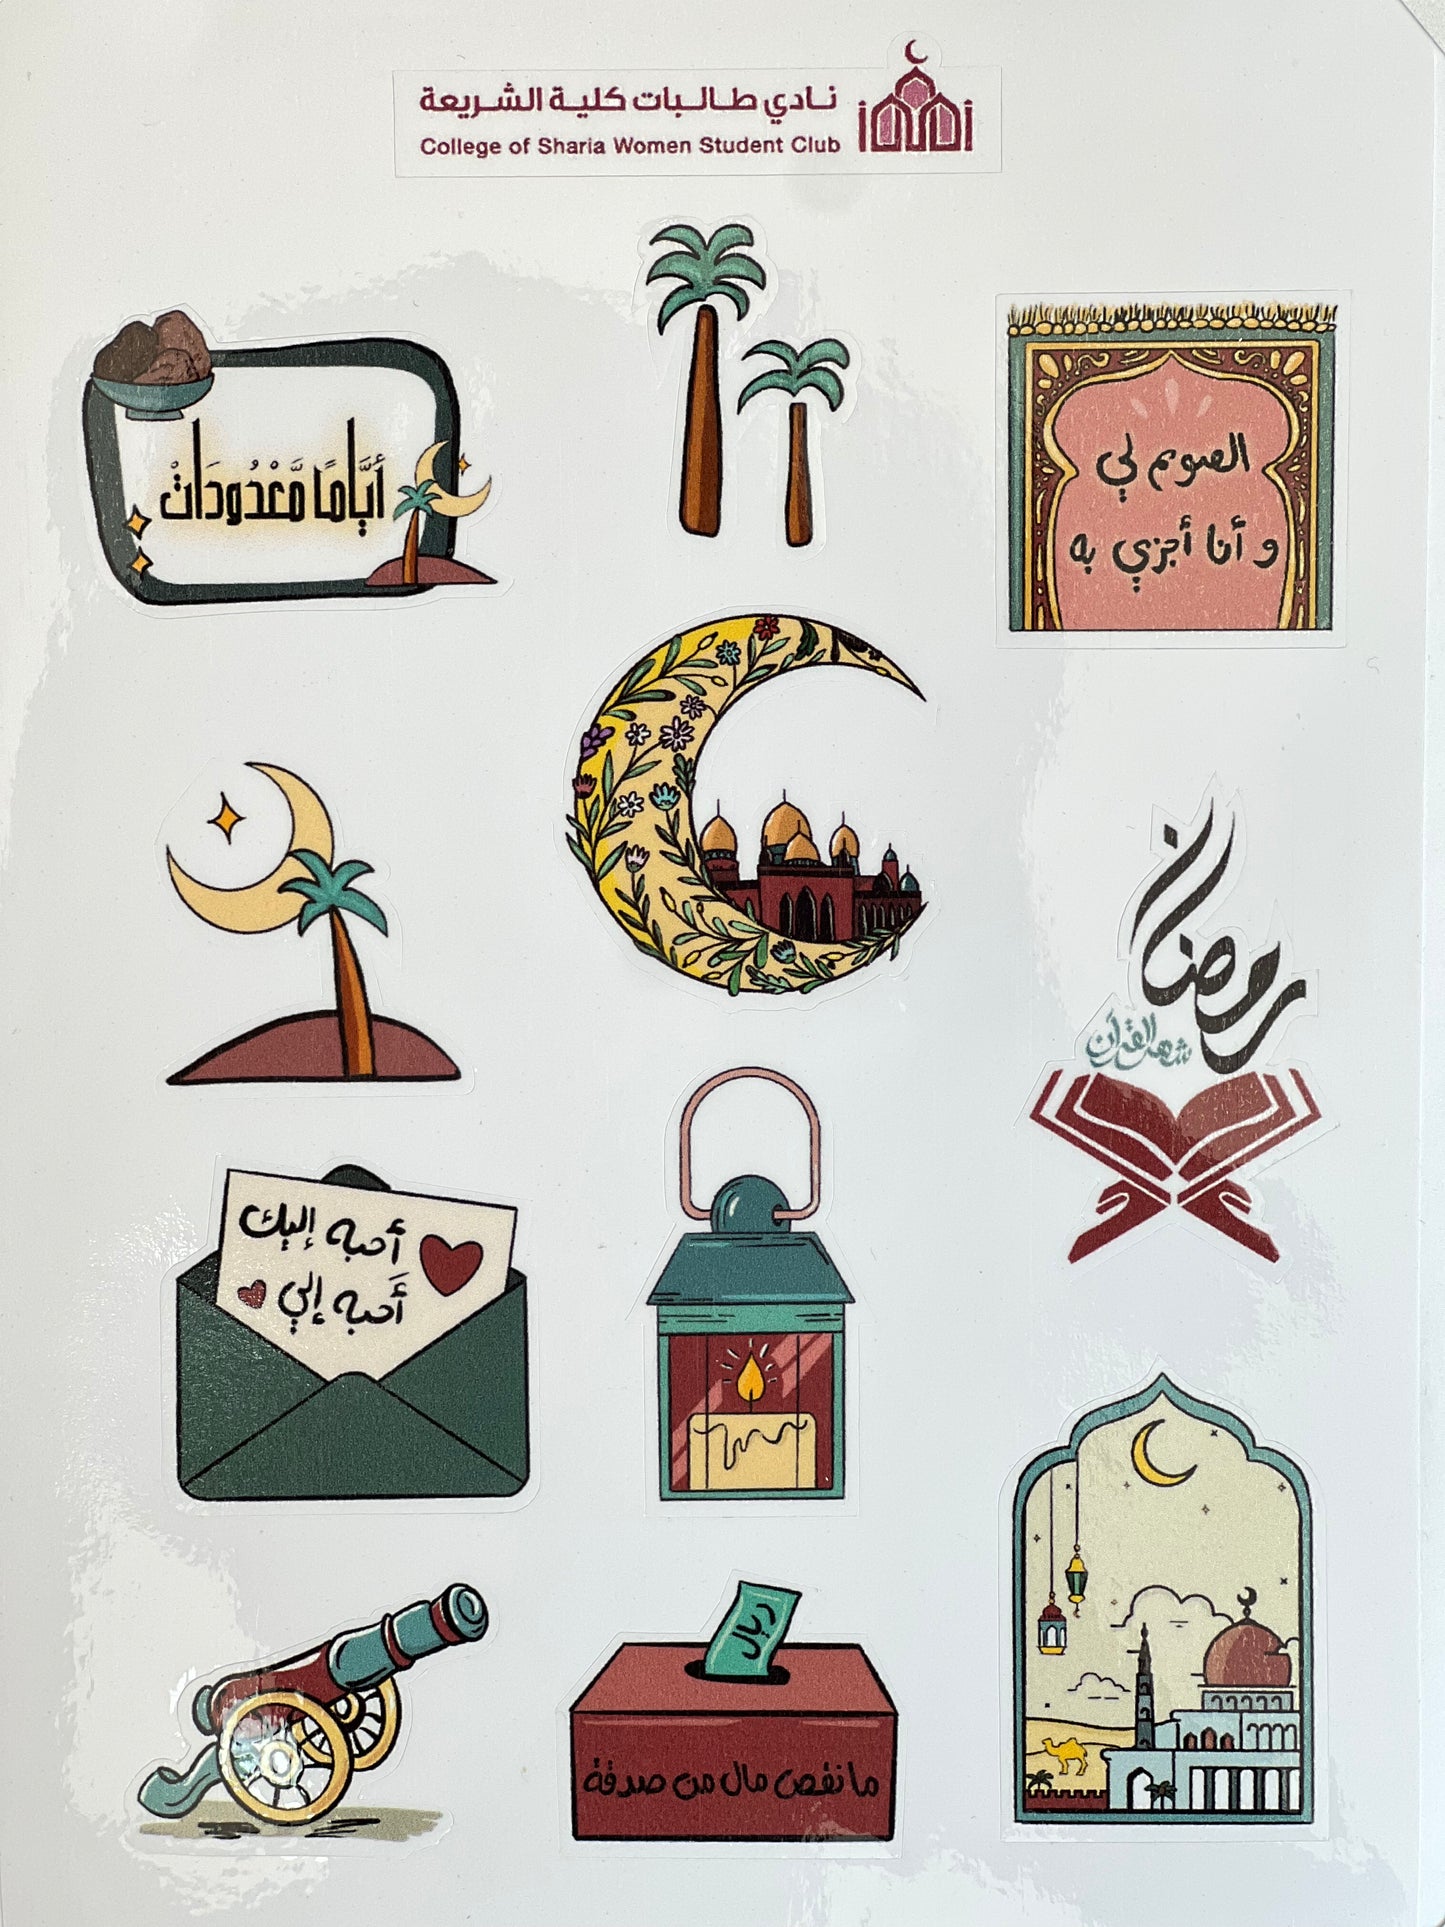 نادي طالبات كلية الشريعة
College of Sharia Women Student Club
أَيَّامًا مَّعْدُودَاتْ
الصوم لي
و أنا أجزي به
رمضان
شهر القرآن
أحبه إليك
أَحبه إلي
ريال
ما نقص مال من صدقة